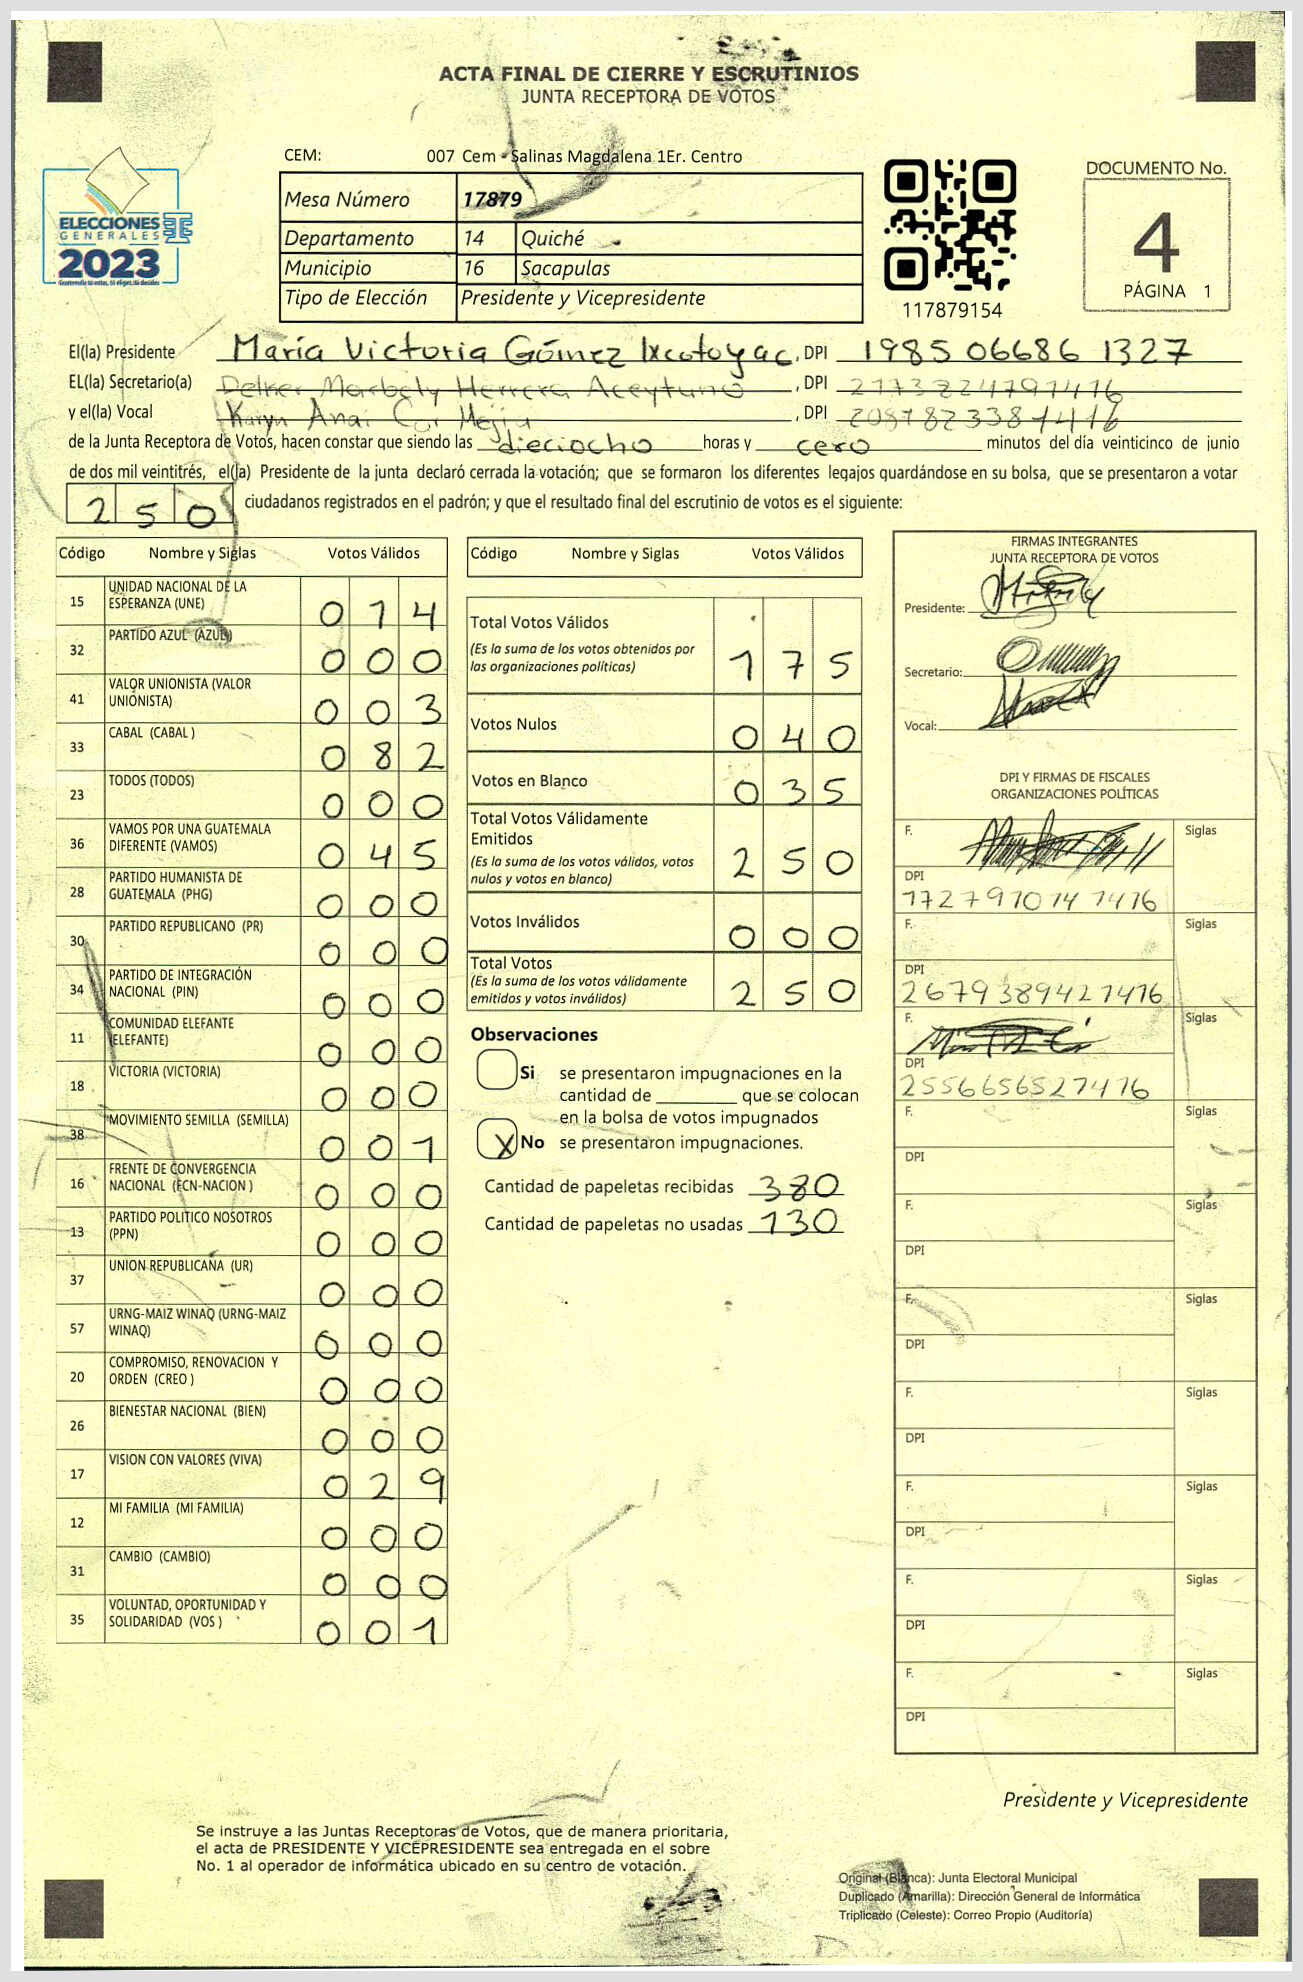 ACTA FINAL DE CIERRE Y ESCRUTINIOS
JUNTA RECEPTORA DE VOTOS
CEM: 007 Cem - Salinas Magdalena 1Er. Centro
Mesa Número 17879
Departamento 14 Quiché
Municipio 16 Sacapulas
Tipo de Elección Presidente y Vicepresidente
ELECCIONES
GENERALES
2023
TSE
117879154
DOCUMENTO No.
4
PÁGINA 1
El(la) Presidente María Victoria Gómez Ixcotoyac, DPI 1985 06686 1327
EL(la) Secretario(a) Herrera Aceytuno, DPI
y el(la) Vocal Karyn Anaí, DPI
de la Junta Receptora de Votos, hacen constar que siendo las dieciocho horas y cero minutos del día veinticinco de junio
de dos mil veintitrés, el(la) Presidente de la junta declaró cerrada la votación; que se formaron los diferentes legajos quardándose en su bolsa, que se presentaron a votar
250 ciudadanos registrados en el padrón; y que el resultado final del escrutinio de votos es el siguiente:
Código Nombre y Siglas Votos Válidos
15 UNIDAD NACIONAL DE LA ESPERANZA (UNE) 014
32 PARTIDO AZUL (AZUL) 000
41 VALOR UNIONISTA (VALOR UNIONISTA) 003
33 CABAL (CABAL ) 082
23 TODOS (TODOS) 000
36 VAMOS POR UNA GUATEMALA DIFERENTE (VAMOS) 045
28 PARTIDO HUMANISTA DE GUATEMALA (PHG) 000
30 PARTIDO REPUBLICANO (PR) 000
34 PARTIDO DE INTEGRACIÓN NACIONAL (PIN) 000
11 COMUNIDAD ELEFANTE (ELEFANTE) 000
18 VICTORIA (VICTORIA) 000
38 MOVIMIENTO SEMILLA (SEMILLA) 001
16 FRENTE DE CONVERGENCIA NACIONAL (FCN-NACION ) 000
13 PARTIDO POLITICO NOSOTROS (PPN) 000
37 UNION REPUBLICANA (UR) 000
57 URNG-MAIZ WINAQ (URNG-MAIZ WINAQ) 000
20 COMPROMISO, RENOVACION Y ORDEN (CREO ) 000
26 BIENESTAR NACIONAL (BIEN) 000
17 VISION CON VALORES (VIVA) 029
12 MI FAMILIA (MI FAMILIA) 000
31 CAMBIO (CAMBIO) 000
35 VOLUNTAD, OPORTUNIDAD Y SOLIDARIDAD (VOS ) 001
Código Nombre y Siglas Votos Válidos
Total Votos Válidos
(Es la suma de los votos obtenidos por
las organizaciones políticas) 175
Votos Nulos 040
Votos en Blanco 035
Total Votos Válidamente
Emitidos
(Es la suma de los votos válidos, votos
nulos y votos en blanco) 250
Votos Inválidos 000
Total Votos
(Es la suma de los votos válidamente
emitidos y votos inválidos) 250
Observaciones
Si se presentaron impugnaciones en la
cantidad de ________ que se colocan
en la bolsa de votos impugnados
X No se presentaron impugnaciones.
Cantidad de papeletas recibidas 380
Cantidad de papeletas no usadas 130
FIRMAS INTEGRANTES
JUNTA RECEPTORA DE VOTOS
Presidente:
Secretario:
Vocal:
DPI Y FIRMAS DE FISCALES
ORGANIZACIONES POLÍTICAS
F. Siglas
DPI
1727970741416
F. Siglas
DPI
2679389421416
F. Siglas
DPI
2556656521416
F. Siglas
DPI
F. Siglas
DPI
F. Siglas
DPI
F. Siglas
DPI
F. Siglas
DPI
F. Siglas
DPI
F. Siglas
DPI
Presidente y Vicepresidente
Se instruye a las Juntas Receptoras de Votos, que de manera prioritaria,
el acta de PRESIDENTE Y VICEPRESIDENTE sea entregada en el sobre
No. 1 al operador de informática ubicado en su centro de votación.
Original (Blanca): Junta Electoral Municipal
Duplicado (Amarilla): Dirección General de Informática
Triplicado (Celeste): Correo Propio (Auditoría)